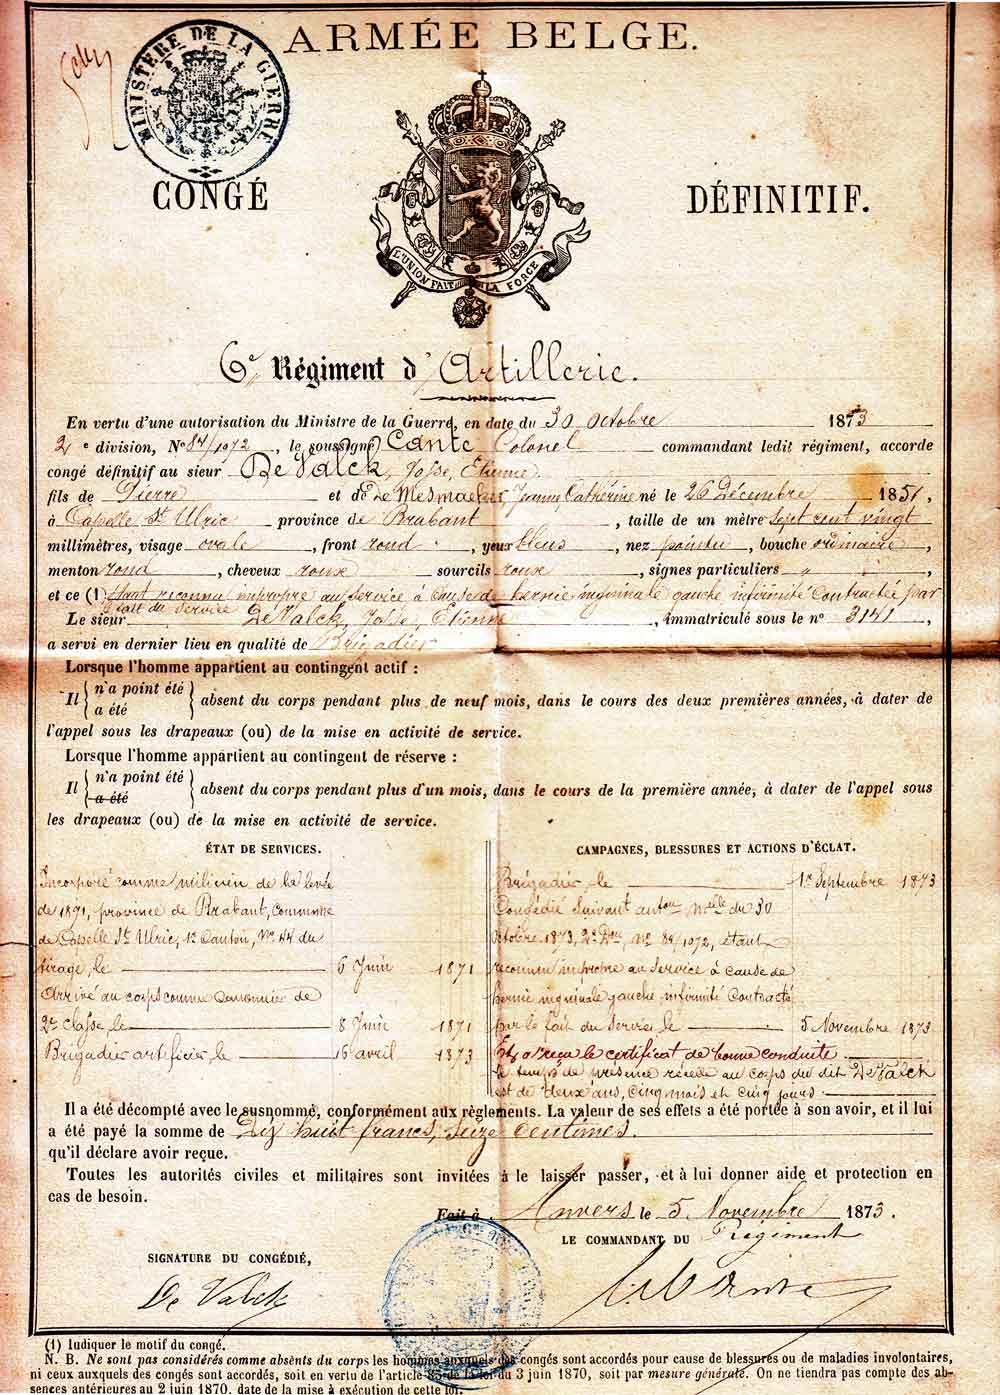 ARMÉE BELGE.
MINISTÈRE DE LA GUERRE
CONGÉ DÉFINITIF.
L'UNION FAIT LA FORCE
6e Régiment d'Artillerie.
En vertu d'une autorisation du Ministre de la Guerre, en date du 30 Octobre 1873
2e division, No 84/1072, le soussigné Cante Colonel commandant ledit régiment, accorde
congé définitif au sieur De Valck, Josse, Etienne
fils de Pierre et de De Mesmaeker, Jeanne Cathérine né le 26 Décembre 1851,
à Capelle St Ulric province de Brabant, taille de un mètre sept cent vingt
millimètres, visage ovale, front rond, yeux bleus, nez pointu, bouche ordinaire,
menton rond, cheveux roux sourcils roux, signes particuliers "
et ce (1) étant reconnu impropre au service à cause de hernie inguinale gauche infirmité contractée par
le fait du service
Le sieur De Valck, Josse, Etienne, immatriculé sous le no 3141,
a servi en dernier lieu en qualité de Brigadier
Lorsque l'homme appartient au contingent actif :
Il { n'a point été
a été } absent du corps pendant plus de neuf mois, dans le cours des deux premières années, à dater de
l'appel sous les drapeaux (ou) de la mise en activité de service.
Lorsque l'homme appartient au contingent de réserve :
Il { n'a point été
a été } absent du corps pendant plus d'un mois, dans le cours de la première année, à dater de l'appel sous
les drapeaux (ou) de la mise en activité de service.
ÉTAT DE SERVICES.
Incorporé comme milicien de la levée
de 1871, province de Brabant, commune
de Capelle St Ulric, 1r Canton, No 44 du
tirage, le 6 Juin 1871
Arrivé au corps comme Canonnier de
2e classe, le 8 Juin 1871
Brigadier artificier le 16 avril 1873
CAMPAGNES, BLESSURES ET ACTIONS D'ÉCLAT.
Brigadier, le 1er Septembre 1873
Congédié suivant auton Mlle du 30
Octobre 1873, 2e Don, No 84/1072, étant
reconnu impropre au service à cause de
hernie inguinale gauche infirmité contractée
par le fait du service le 5 Novembre 1873
Et a reçu le certificat de bonne conduite
Le temps de présence réelle au corps du dit De Valck
est de deux ans, cinq mois et cinq jours.
Il a été décompté avec le susnommé, conformément aux règlements. La valeur de ses effets a été portée à son avoir, et il lui
a été payé la somme de Dix huit francs, seize centimes.
qu'il déclare avoir reçue.
Toutes les autorités civiles et militaires sont invitées à le laisser passer, et à lui donner aide et protection en
cas de besoin.
Fait à Anvers le 5 Novembre 1873.
LE COMMANDANT DU Régiment
SIGNATURE DU CONGÉDIÉ,
De Valck
(1) Indiquer le motif du congé.
N. B. Ne sont pas considérés comme absents du corps les hommes auxquels des congés sont accordés pour cause de blessures ou de maladies involontaires,
ni ceux auxquels des congés sont accordés, soit en vertu de l'article 85 de la loi du 3 juin 1870, soit par mesure générale. On ne tiendra pas compte des ab-
sences antérieures au 2 juin 1870, date de la mise à exécution de cette loi.